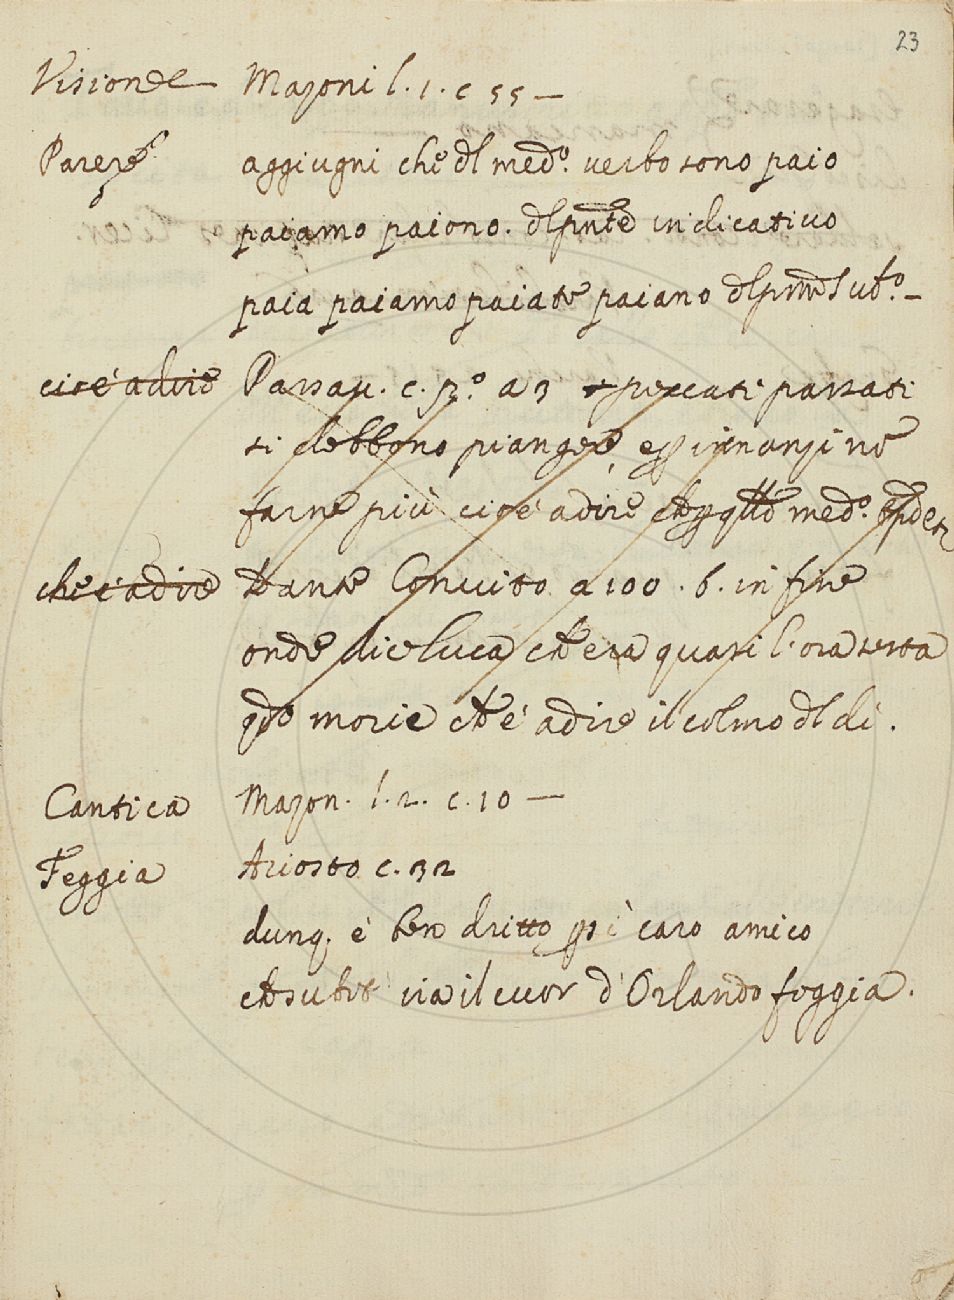 23
Visione Mazoni l. 1. c 55 —
Parere aggiugni che dl med.º verbo sono paio
paiamo paiono. dl pnte indicativo
paia paiamo paiate paiano dl pnte sub.º —
cioè a dire Passav. c. p.º a 3 peccati passati
si debbono piangere, e innanzi nõ
farne più cioè a dire med.º
che è a dire Dante Convito a 100. b. in fine
onde dice Luca che era quasi l'ora sesta
qdo morie che è a dire il colmo dl dì.
Cantica Mazon. l. 2. c. 10 —
Feggia Ariosto c. 32
dunq. è ben dritto caro amico
che subito via il cuor d'Orlando feggia.